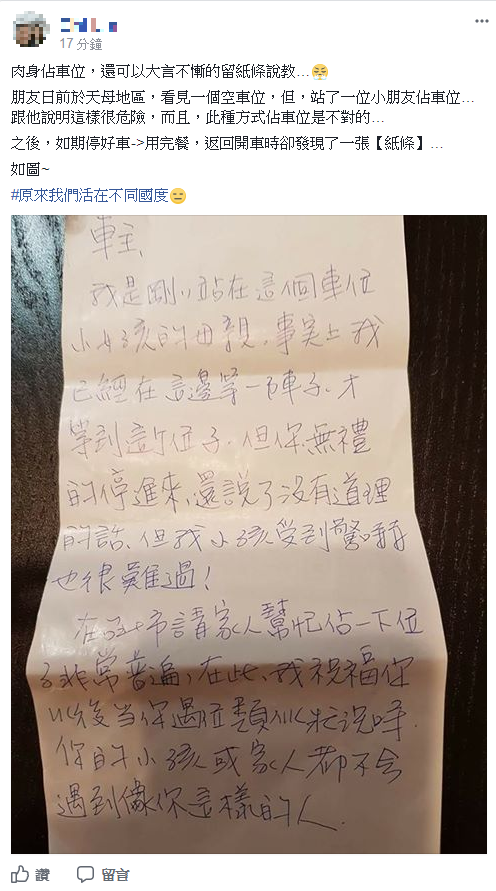 17 分鐘
肉身佔車位，還可以大言不慚的留紙條說教...
朋友日前於天母地區，看見一個空車位，但，站了一位小朋友佔車位...
跟他說明這樣很危險，而且，此種方式佔車位是不對的...
之後，如期停好車->用完餐，返回開車時卻發現了一張【紙條】...
如圖~
#原來我們活在不同國度
車主、
我是剛小站在這個車位
小女孩的母親，事实上我
已經在這邊等一陣子，才
等到這个位子，但你無禮
的停進來，還說了没有道理
的話、但我小孩受到驚嚇
也很難過！
在 市請家人幫忙佔一下位
子非常普遍，在此，我祝福你
以後当你遇位類似狀況時，
你的小孩或家人都不会
遇到像你這樣的人．
讚 留言